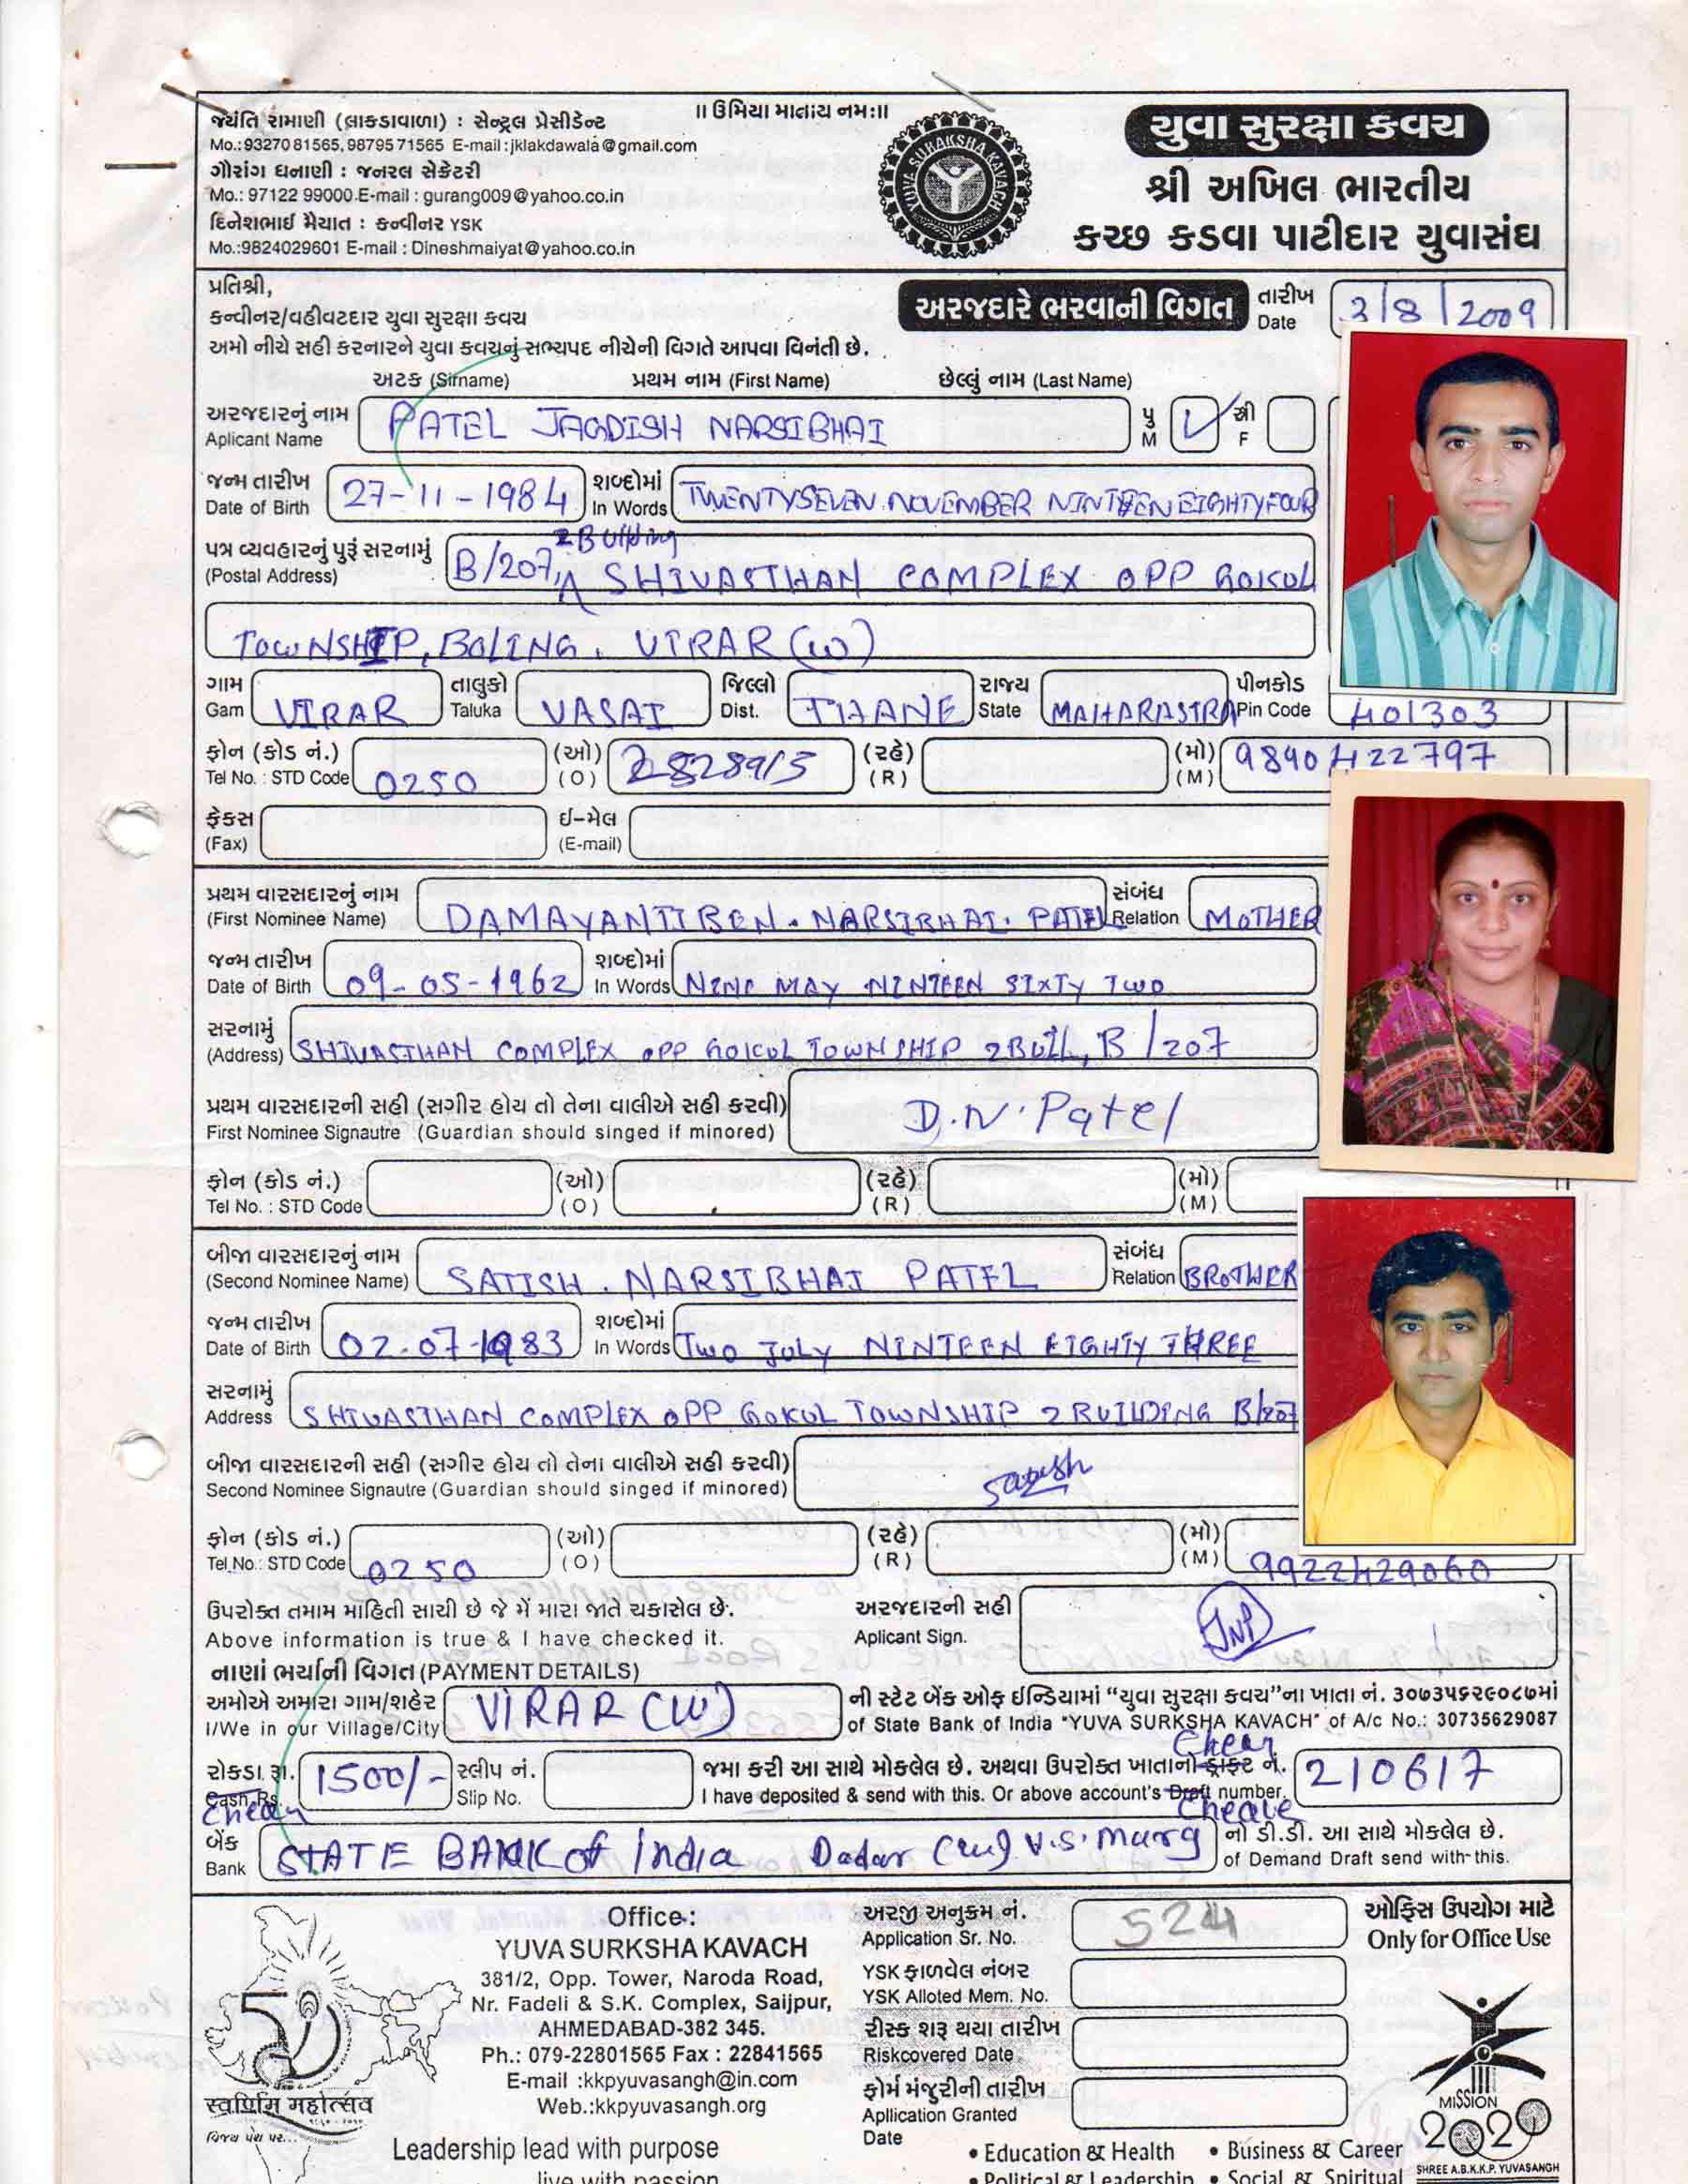 ॥ ઉમિયા માતાય નમઃ॥
જ્યંતિ રામાણી (લાકડાવાળા) : સેન્ટ્રલ પ્રેસીડેન્ટ
Mo.:93270 81565, 98795 71565 E-mail : jklakdawala@gmail.com
ગૌરાંગ ધનાણી : જનરલ સેક્રેટરી
Mo.: 97122 99000 E-mail : gurang009@yahoo.co.in
દિનેશભાઈ મૈયાત : કન્વીનર YSK
Mo.:9824029601 E-mail : Dineshmaiyat@yahoo.co.in
YUVA SURAKSHA KAVACH
યુવા સુરક્ષા કવચ
શ્રી અખિલ ભારતીય
કચ્છ કડવા પાટીદાર યુવાસંઘ
પ્રતિશ્રી,
કન્વીનર/વહીવટદાર યુવા સુરક્ષા કવચ
અમો નીચે સહી કરનારને યુવા કવચનું સભ્યપદ નીચેની વિગતે આપવા વિનંતી છે.
અરજદારે ભરવાની વિગત
તારીખ Date 2/8/2009
અટક (Sirname) પ્રથમ નામ (First Name) છેલ્લું નામ (Last Name)
અરજદારનું નામ Aplicant Name PATEL JAGDISH NARSIBHAI પુ M ✓ સ્ત્રી F
જન્મ તારીખ Date of Birth 27-11-1984 શબ્દોમાં In Words TWENTYSEVEN NOVEMBER NINTEEN EIGHTYFOUR
2 Building
પત્ર વ્યવહારનું પુરૂં સરનામું (Postal Address) B/207, SHIVASTHAN COMPLEX OPP GOKUL
TOWNSHIP, BOLING. VIRAR (W)
ગામ Gam VIRAR તાલુકો Taluka VASAI જિલ્લો Dist. THANE રાજ્ય State MAHARASTRA પીનકોડ Pin Code 401303
ફોન (કોડ નં.) Tel No. : STD Code 0250 (ઓ) (O) 2828915 (રહે) (R) (મો) (M) 9890422797
ફેકસ (Fax) ઈ-મેલ (E-mail)
પ્રથમ વારસદારનું નામ (First Nominee Name) DAMAYANTIBEN. NARSIBHAI. PATEL સંબંધ Relation MOTHER
જન્મ તારીખ Date of Birth 09-05-1962 શબ્દોમાં In Words NINE MAY NINTEEN SIXTY TWO
સરનામું (Address) SHIVASTHAN COMPLEX OPP GOKUL TOWNSHIP 2 BUIL, B/207
પ્રથમ વારસદારની સહી (સગીર હોય તો તેના વાલીએ સહી કરવી)
First Nominee Signautre (Guardian should singed if minored) D.N. Patel
ફોન (કોડ નં.) Tel No. : STD Code (ઓ) (O) (રહે) (R) (મો) (M)
બીજા વારસદારનું નામ (Second Nominee Name) SATISH. NARSIBHAI PATEL સંબંધ Relation BROTHER
જન્મ તારીખ Date of Birth 02-07-1983 શબ્દોમાં In Words TWO JULY NINTEEN EIGHTY THREE
સરનામું Address SHIVASTHAN COMPLEX OPP GOKUL TOWNSHIP 2 BUILDING B/207
બીજા વારસદારની સહી (સગીર હોય તો તેના વાલીએ સહી કરવી)
Second Nominee Signautre (Guardian should singed if minored) Satish
ફોન (કોડ નં.) Tel No. : STD Code 0250 (ઓ) (O) (રહે) (R) (મો) (M) 9922429060
ઉપરોક્ત તમામ માહિતી સાચી છે જે મેં મારા જાતે ચકાસેલ છે. અરજદારની સહી
Above information is true & I have checked it. Aplicant Sign. JNP
નાણાં ભર્યાની વિગત (PAYMENT DETAILS)
અમોએ અમારા ગામ/શહેર I/We in our Village/City VIRAR (W) ની સ્ટેટ બેંક ઓફ ઈન્ડિયામાં “યુવા સુરક્ષા કવચ”ના ખાતા નં. ૩૦૭૩૫૬૨૯૦૮૭માં
of State Bank of India "YUVA SURKSHA KAVACH" of A/c No.: 30735629087
રોકડા રૂા. Cash Rs. 1500/- સ્લીપ નં. Slip No. જમા કરી આ સાથે મોકલેલ છે. અથવા ઉપરોક્ત ખાતાનો ડ્રાફ્ટ નં. 210617
I have deposited & send with this. Or above account's Draft number.
બેંક Bank STATE BANK of India Dadar (W) V.S. Marg નો ડી.ડી. આ સાથે મોકલેલ છે.
of Demand Draft send with this.
Office :
YUVA SURKSHA KAVACH
381/2, Opp. Tower, Naroda Road,
Nr. Fadeli & S.K. Complex, Saijpur,
AHMEDABAD-382 345.
Ph.: 079-22801565 Fax : 22841565
E-mail :kkpyuvasangh@in.com
Web.:kkpyuvasangh.org
Leadership lead with purpose
live with passion
અરજી અનુક્રમ નં. Application Sr. No. 524
ઓફિસ ઉપયોગ માટે
Only for Office Use
YSK ફાળવેલ નંબર
YSK Alloted Mem. No.
રીસ્ક શરૂ થયા તારીખ
Riskcovered Date
ફોર્મ મંજુરીની તારીખ
Apllication Granted
Date
• Education & Health • Business & Career
• Political & Leadership • Social & Spiritual
MISSION
2020
SHREE A.B.K.K.P. YUVASANGH